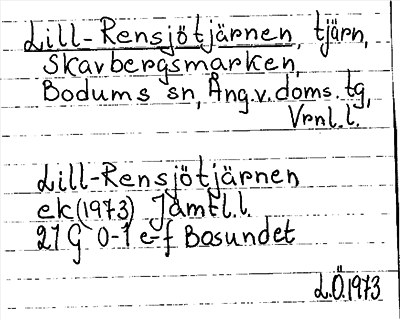 Lill-Rensjötjärnen, tjärn,
Skavbergsmarken,
Bodums sn, Ång.v.doms.tg,
Vrnl.l.
Lill-Rensjötjärnen
ek(1973) Jämtl.l.
21 G 0-1 e-f Bosundet
L.Ö.1973